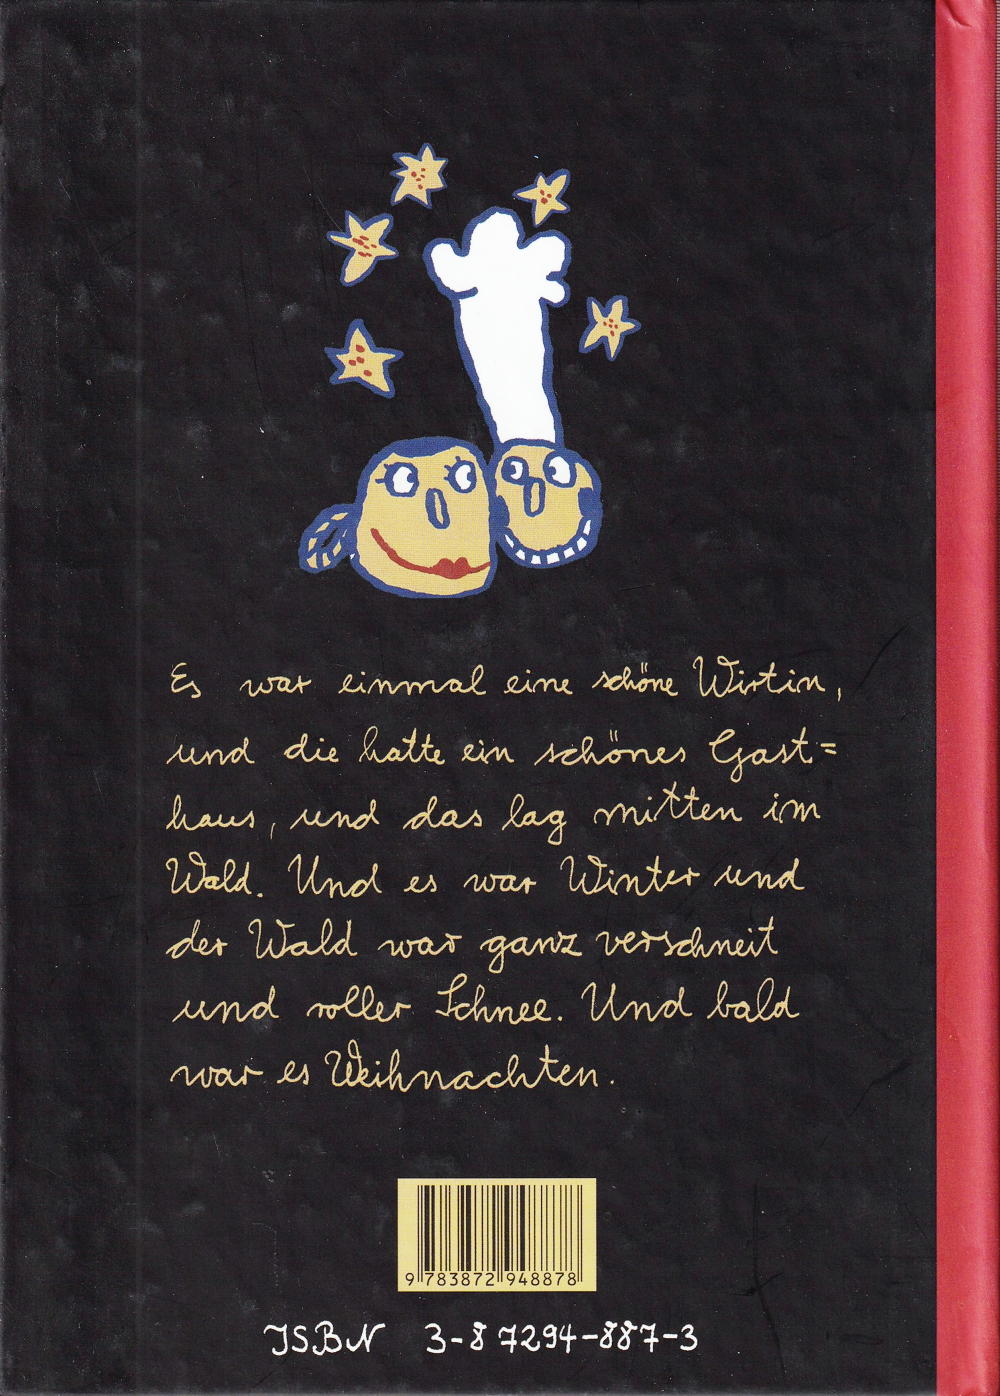 Es war einmal eine schöne Wirtin,
und die hatte ein schönes Gast=
haus, und das lag mitten im
Wald. Und es war Winter und
der Wald war ganz verschneit
und voller Schnee. Und bald
war es Weihnachten.
9 783872 948878
ISBN 3-87294-887-3